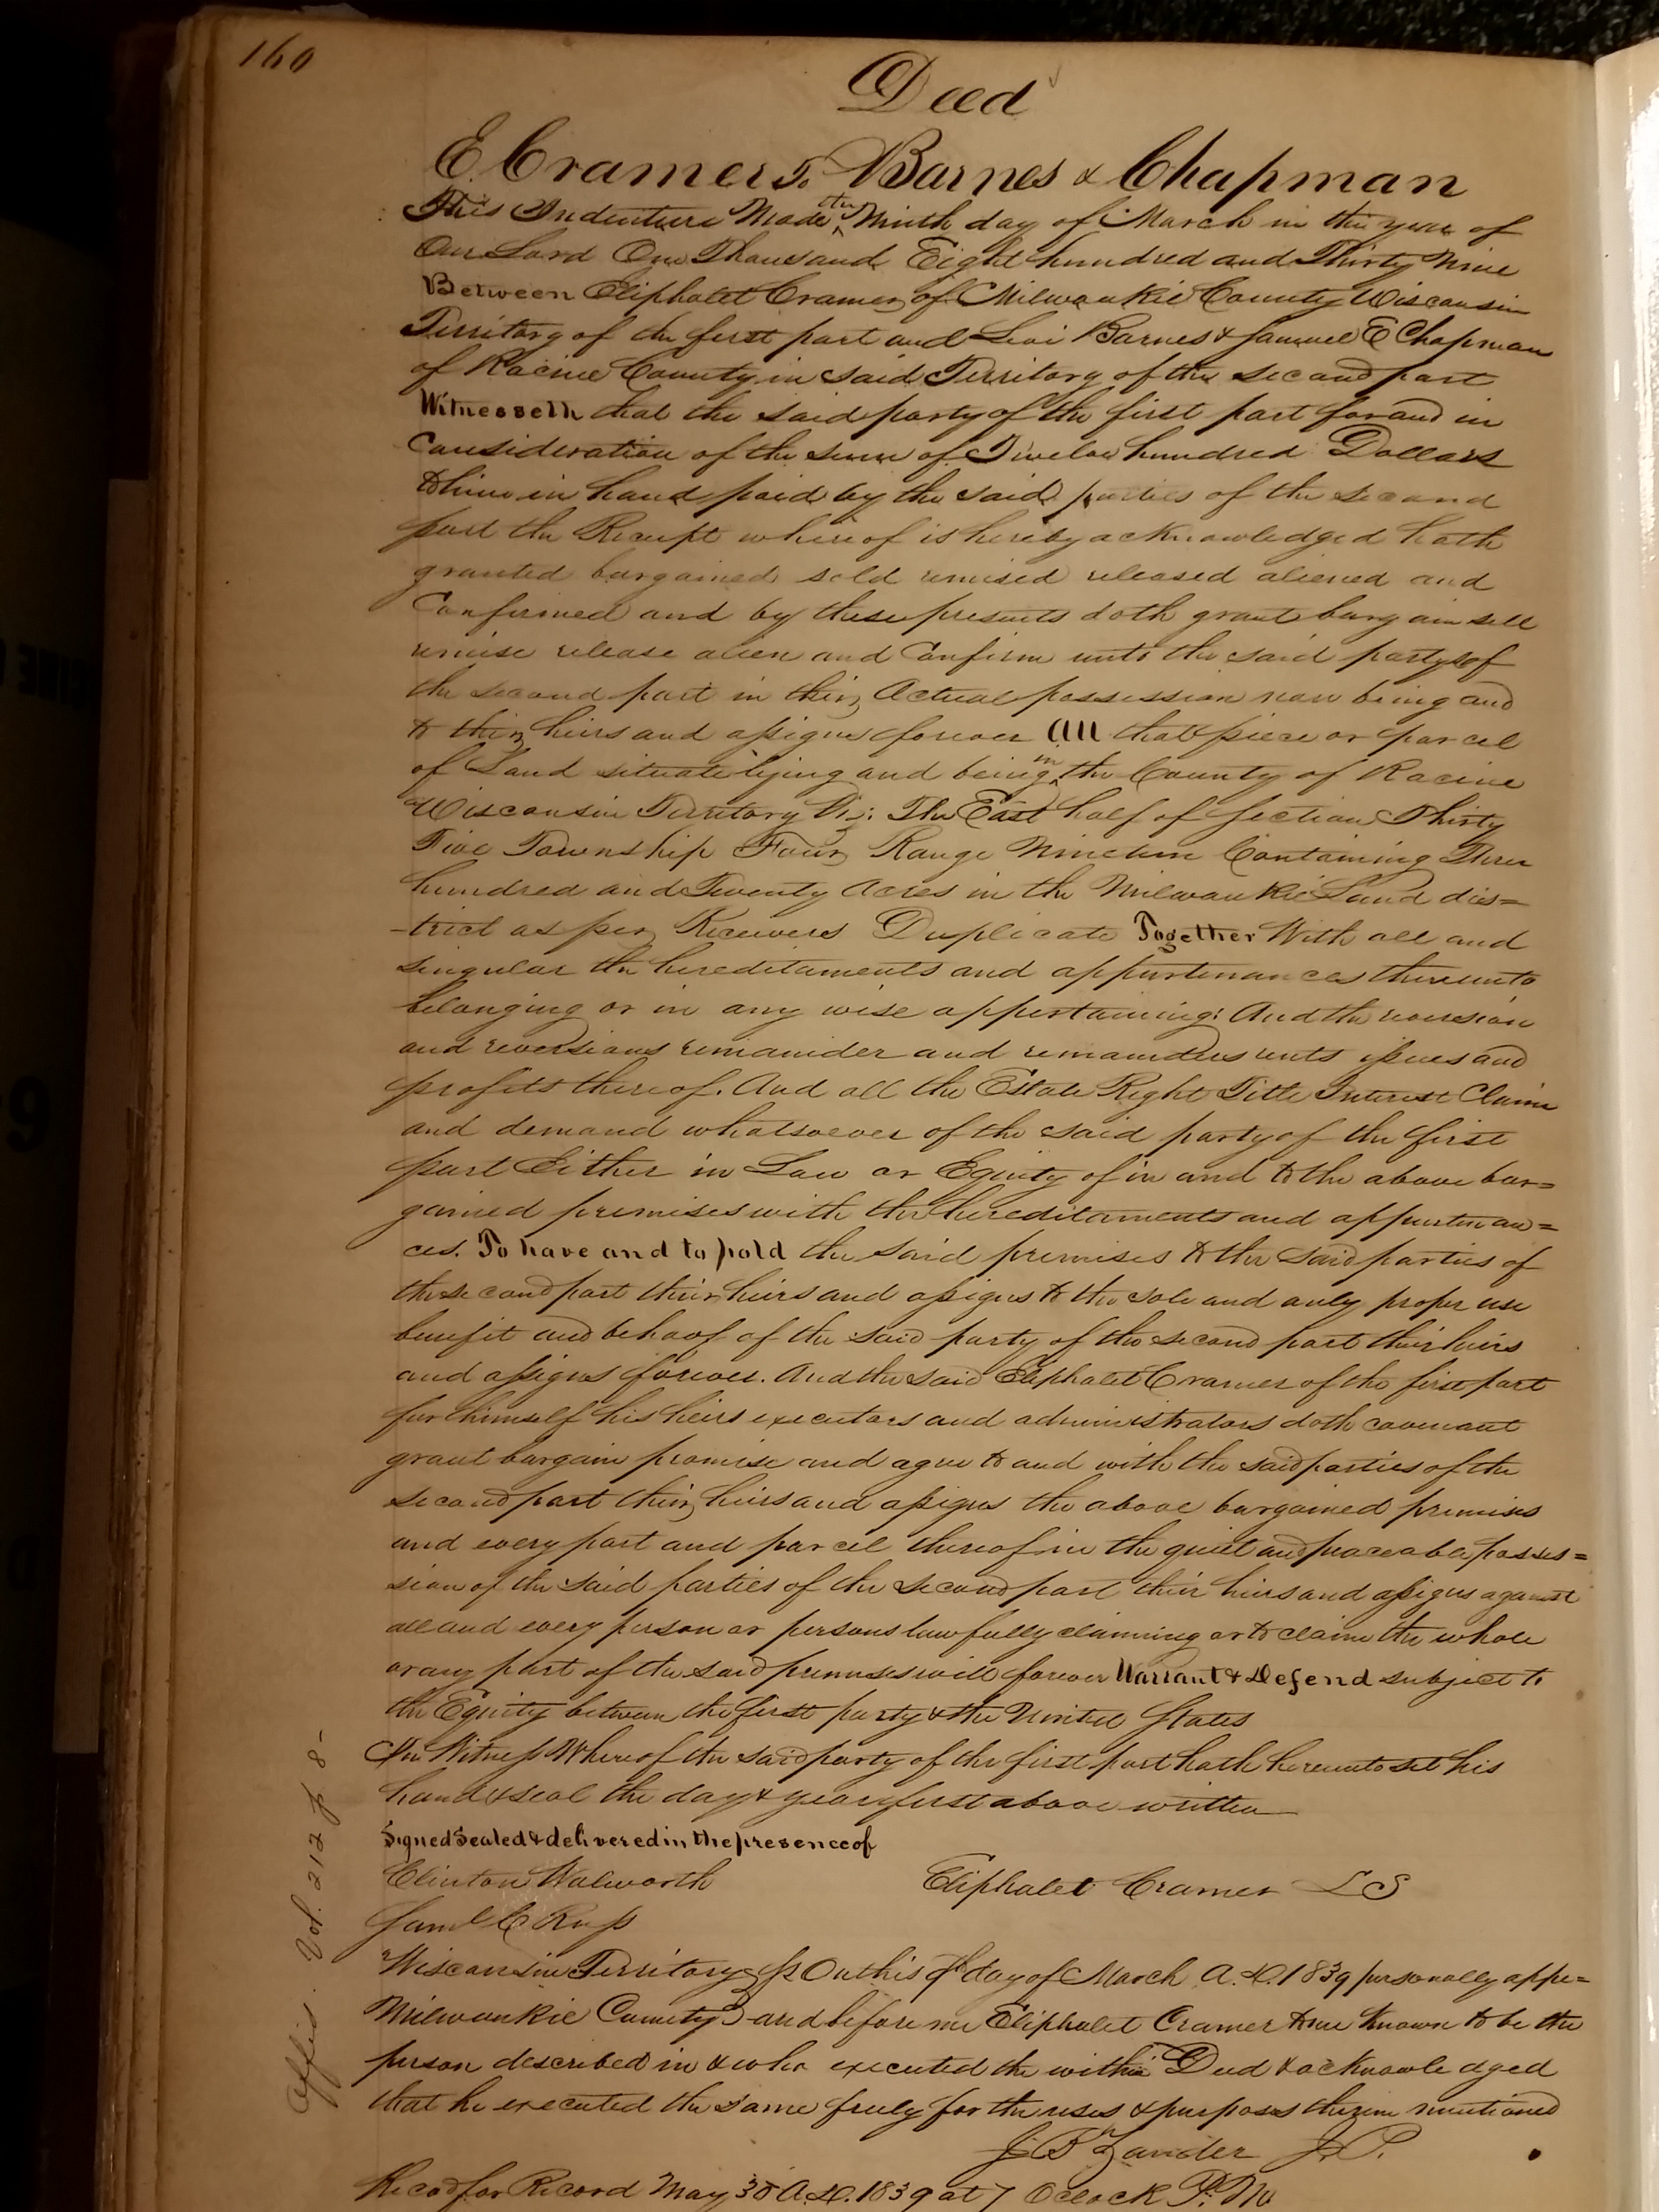 160
Deed
E. Cramer To Barnes & Chapman
This Indenture Made the Ninth day of March in the year of
Our Lord One Thousand Eight hundred and Thirty Nine
Between Eliphalet Cramer of Milwaukie County Wisconsin
Territory of the first part and Levi Barnes & Samuel E Chapman
of Racine County in said Territory of the second part
Witnesseth that the said party of the first part for and in
Consideration of the sum of Twelve hundred Dollars
to him in hand paid by the said parties of the second
part the Receipt whereof is hereby acknowledged hath
granted bargained sold remised released aliened and
Confirmed and by these presents doth grant bargain sell
remise release alien and Confirm unto the said partys of
the second part in their Actual possession now being and
to their heirs and assigns forever All that piece or parcel
of Land situate lying and being in the County of Racine
Wisconsin Territory Viz: The East half of Section Thirty
Five Township Four Range Nineteen Containing Three
hundred and Twenty Acres in the Milwaukie Land dis=
-trict as per Receivers Duplicate Together With all and
singular the hereditaments and appurtenances thereunto
belonging or in any wise appertaining: And the reversion
and reversions remainder and remainders rents issues and
profits thereof. And all the Estate Right Title Interest Claim
and demand whatsoever of the said party of the first
part Either in Law or Equity of in and to the above bar=
gained premises with the hereditaments and appurtenan=
ces. To have and to hold the said premises to the said parties of
the second part their heirs and assigns to the sole and only proper use
benefit and behoof of the said party of the second part their heirs
and assigns forever. And the said Eliphalet Cramer of the first part
for himself his heirs executors and administrators doth covenant
grant bargain promise and agree to and with the said parties of the
second part their heirs and assigns the above bargained premises
and every part and parcel thereof in the quiet and peaceable posses=
sion of the said parties of the second part their heirs and assigns against
all and every person or persons lawfully claiming or to claim the whole
or any part of the said premises will forever Warrant & Defend subject to
the Equity between the first party & the United States
In Witness Whereof the said party of the first part hath hereunto set his
hand & seal the day & year first above written
Signed Sealed & delivered in the presence of
Clinton Walworth Eliphalet Cramer L S
Saml C Russ
Wisconsin Territory } ss On this 9th day of March A.D. 1839 personally appe=
Milwaukie County } ared before me Eliphalet Cramer to me known to be the
person described in & who executed the within Deed & acknowledged
that he executed the same freely for the uses & purposes therein mentioned
J B Zander J.P.
Recd for Record May 30 A.D. 1839 at 7 Oclock P.M.
Affis. Vol. 212 p 8-